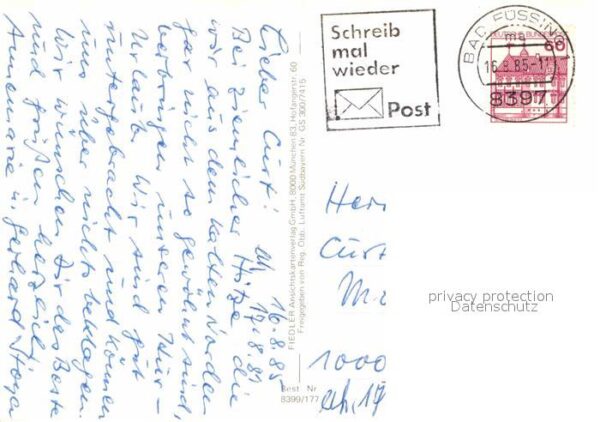 Schreib
mal
wieder
Post
BAD FÜSSING
ma
16.8.85-11
8397
DEUTSCHE BUNDESPOST
60
16.8.85
Lieber Curt!
Bei ziemlicher Hitze, die
wir aus dem kalten Norden
gar nicht so gewöhnt sind,
verbringen unseren Kur-
Urlaub. Wir sind gut
untergebracht und können
uns über nichts beklagen.
Wir wünschen Dir das Beste
und grüßen herzlich
Annemarie u. Gerhard
FIEDLER Ansichtskartenverlag GmbH, 8000 München 83, Hofangerstr. 60
Freigegeben von Reg. Obb. Luftamt Südbayern Nr. GS 300/7415
Best. Nr.
8399/177
Herr
Curt
privacy protection
Datenschutz
1000